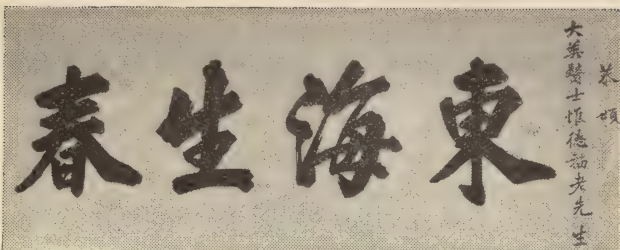 恭頌
大英醫士惟德劼老先生
東海生春